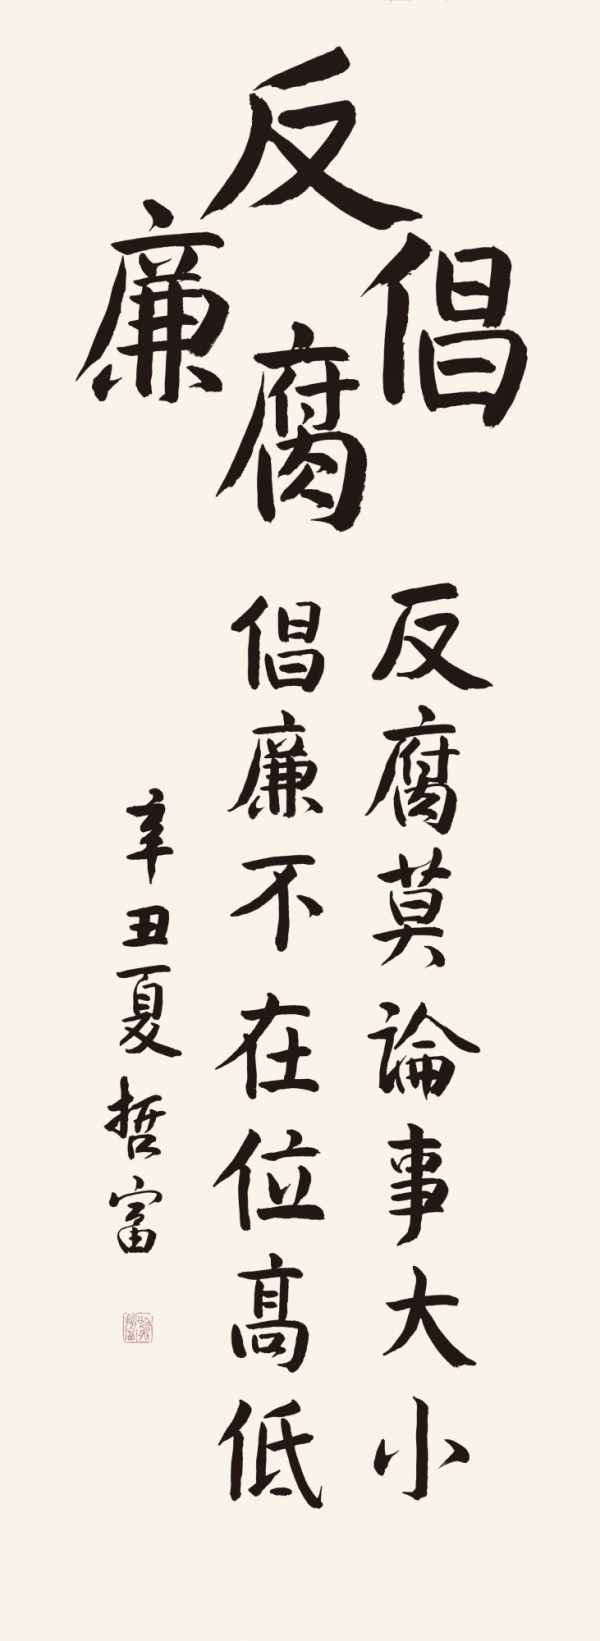 反腐倡廉
反腐莫論事大小
倡廉不在位高低
辛丑夏哲富